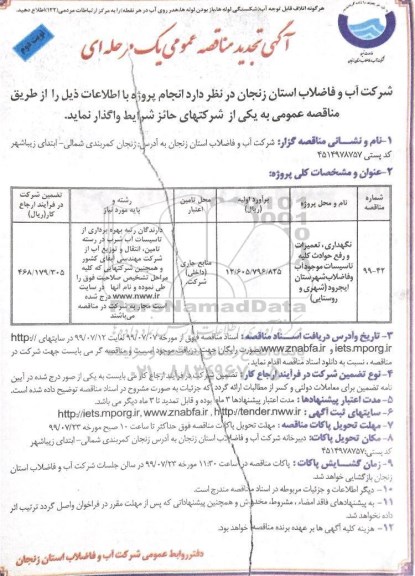 هرگونه اتلاف قابل توجه آب(شکستگی لوله ها،باز بودن لوله ها،هدر روی آب در هر نقطه)را به مرکز ارتباطات مردمی(۱۲۲)اطلاع دهید.
نوبت دوم
آگهی تجدید مناقصه عمومی یک مرحله ای
شرکت آب و فاضلاب استان زنجان در نظر دارد انجام پروژه با اطلاعات ذیل را از طریق
مناقصه عمومی به یکی از شرکتهای حائز شرایط واگذار نماید.
۱-نام و نشـــانی مناقصه گزار: شرکت آب و فاضلاب استان زنجان به آدرس: زنجان کمربندی شمالی- ابتدای زیباشهر
کد پستی ۴۵۱۴۹۷۸۷۵۷
۲-عنوان و مشخصات کلی پروژه:
شماره مناقصه
نام و محل پروژه
برآورد اولیه (ریال)
محل تامین اعتبار
رشته و پایه مورد نیاز
تضمین شرکت در فرآیند ارجاع کار(ریال)
۹۹-۴۲
نگهداری، تعمیرات و رفع حوادث کلیه تاسیسات موجود آب وفاضلاب شهرستان ایجرود (شهری و روستایی)
۱۲/۶۰۵/۷۹۶/۸۲۵
منابع جاری (داخلی) شرکت
دارندگان رتبه بهره برداری از
تاسیسات آب شرب در رسته
تامین، انتقال و توزیع آب از
شرکت مهندسی آبفای کشور
و همچنین شرکتهایی که کلیه
مراحل تشخیص صلاحیت فوق را
طی نموده و نام آنها در سایت
www.nww.ir درج شده
است مجازبه شرکت در مناقصه
می‌باشند
۴۶۸/۱۷۹/۳۰۵
۳- تاریخ وآدرس دریافت اســـناد مناقصه: اسناد مناقصه فوق از مورخه ۹۹/۰۷/۰۷ لغایت ۹۹/۰۷/۱۲ در سایتهای http://
iets.mporg.ir و www.znabfa.ir بصورت رایگان جهت دریافت موجود است و مناقصه گر می بایست جهت شرکت در
مناقصه، نسبت به دانلود اسناد مناقصه اقدام نماید.
۴- نوع تضمین شرکت در فرآیندارجاع کار: تضمین شرکت در فرآیند ارجاع کار می بایست به یکی از صور درج شده در آیین
نامه تضمین برای معاملات دولتی و کسر از مطالبات ارائه گردد که جزئیات به صورت مشروح در اسناد مناقصه توضیح داده شده است.
۵- مدت اعتبار پیشنهادها : مدت اعتبار پیشنهادها ۳ ماه بوده و قابل تمدید تا ۳ ماه دیگر می باشد.
۶- سایتهای ثبت آگهی : http://iets.mporg.ir, www.znabfa.ir , http://tender.nww.ir
۷- مهلت تحویل پاکات مناقصه : مهلت تحویل پاکات مناقصه فوق حداکثر تا ساعت ۱۰ صبح مورخه ۹۹/۰۷/۲۳
۸- مکان تحویل پاکات: دبیرخانه شرکت آب و فاضلاب استان زنجان به آدرس زنجان کمربندی شمالی- ابتدای زیباشهر
کدپستی:۴۵۱۴۹۷۸۷۵۷
۹- زمان گشـــایش پاکات : پاکات مناقصه در ساعت ۱۱:۳۰ مورخه ۹۹/۰۷/۲۳ در سالن جلسات شرکت آب و فاضلاب استان
زنجان بازگشایی خواهد شد.
۱۰- دیگر اطلاعات و جزئیات مربوطه در اسناد مناقصه مندرج است.
۱۱- به پیشنهادهای فاقد امضاء ، مشروط، مخدوش و همچنین پیشنهاداتی که پس از مهلت مقرر در فراخوان واصل گردد ترتیب اثر
داده نخواهد شد.
۱۲- هزینه کلیه آگهی ها بر عهده برنده مناقصه خواهد بود.
دفتر روابط عمومی شرکت آب و فاضلاب استان زنجان